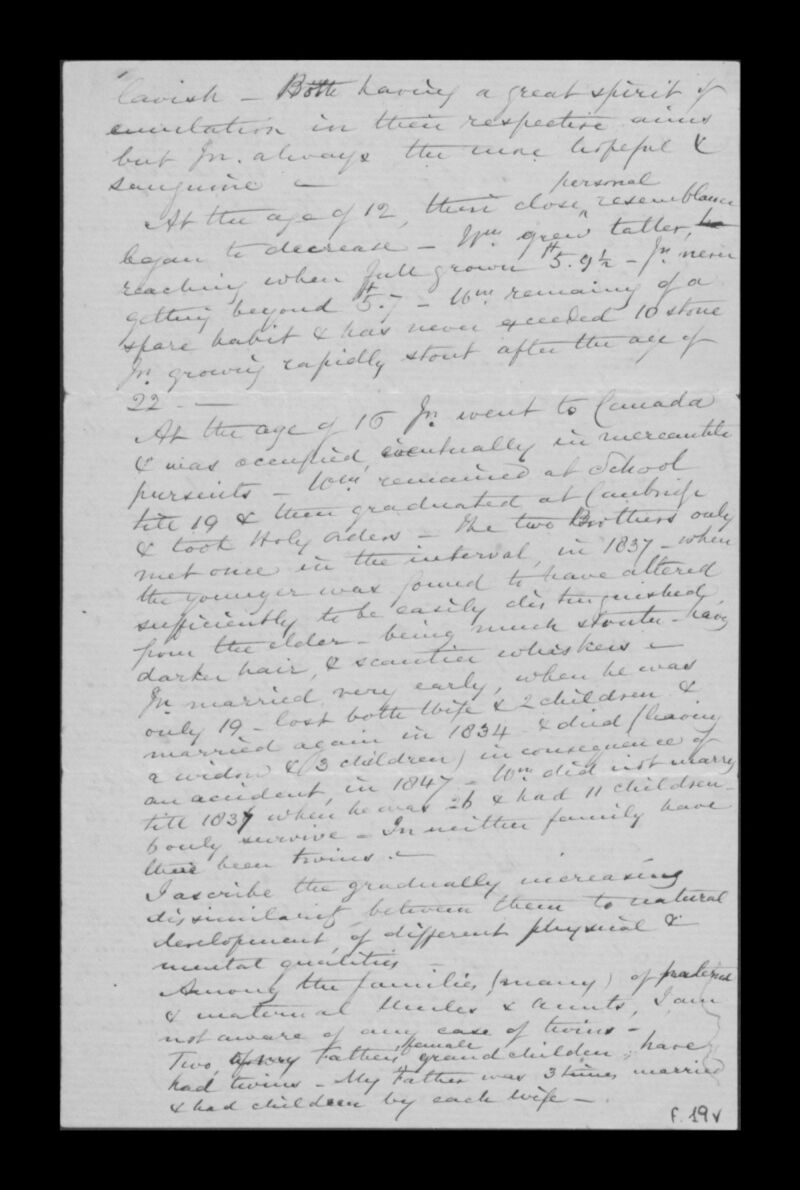 lavish – Both having a great spirit of
emulation in their respective aims
but Jn. always the more hopeful &
sanguine –
personal
At the age of 12, their close resemblance
began to decrease – Wm grew taller,
reaching when full grown 5 ft. 9½ – Jn never
getting beyond 5 ft. 7 – Wm remaining of a
spare habit & has never exceeded 10 stone
Jn growing rapidly stout after the age of
22 –
At the age of 16 Jn went to Canada
& was occupied, eventually in mercantile
pursuits – Wm remained at School
till 19 & then graduated at Cambridge
& took Holy orders – The two Brothers only
met once in the interval, in 1837 – when
the younger was found to have altered
sufficiently to be easily distinguished
from the elder – being much stouter – having
darker hair, & scantier whiskers –
Jn married very early, when he was
only 19 – lost both Wife & 2 children &
married again in 1834 & died (leaving
a widow & 3 children) in consequence of
an accident, in 1847 – Wm did not marry
till 1837 when he was 26 & had 11 children –
6 only survive – In neither family have
there been twins –
I ascribe the gradually increasing
dissimilarity between them to natural
development, of different physical &
mental qualities –
Among the families (many) of paternal
& maternal Uncles & Aunts, I am
not aware of any case of twins –
female
Two, of my Father's grandchildren, have
had twins – My Father was 3 times married
& had children by each wife –
f. 19v